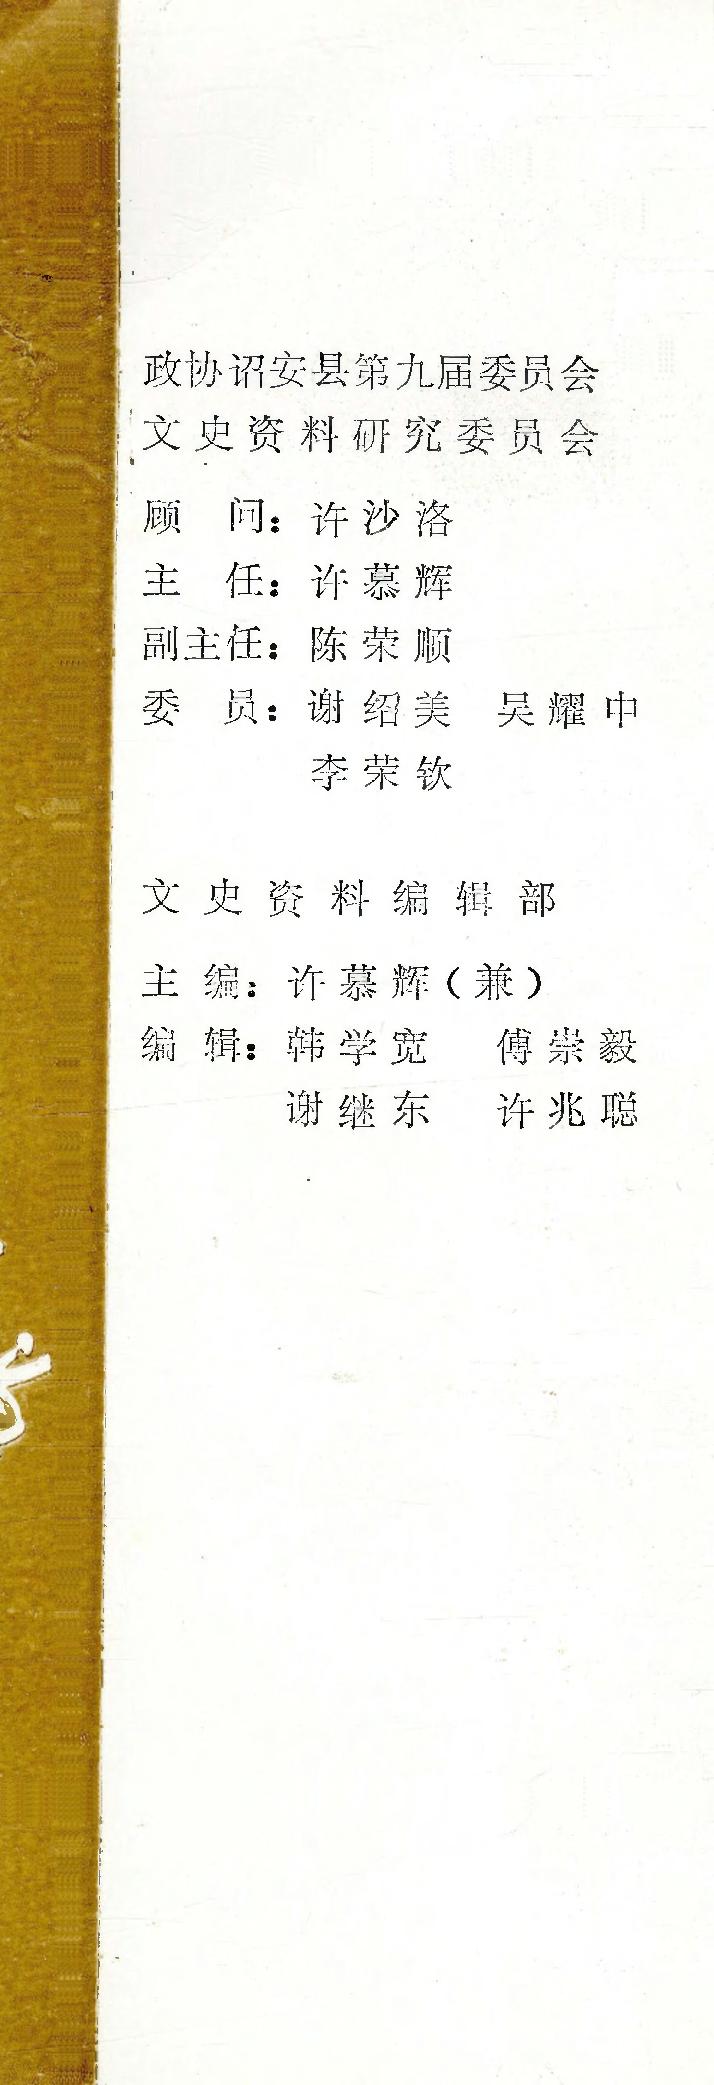 政协诏安县第九届委员会
文史资料研究委员会
顾 问：许沙洛
主 任：许慕辉
副主任：陈荣顺
委 员：谢绍美 吴耀中
李荣钦
文史资料编辑部
主编：许慕辉（兼）
编辑：韩学宽 傅崇毅
谢继东 许兆聪